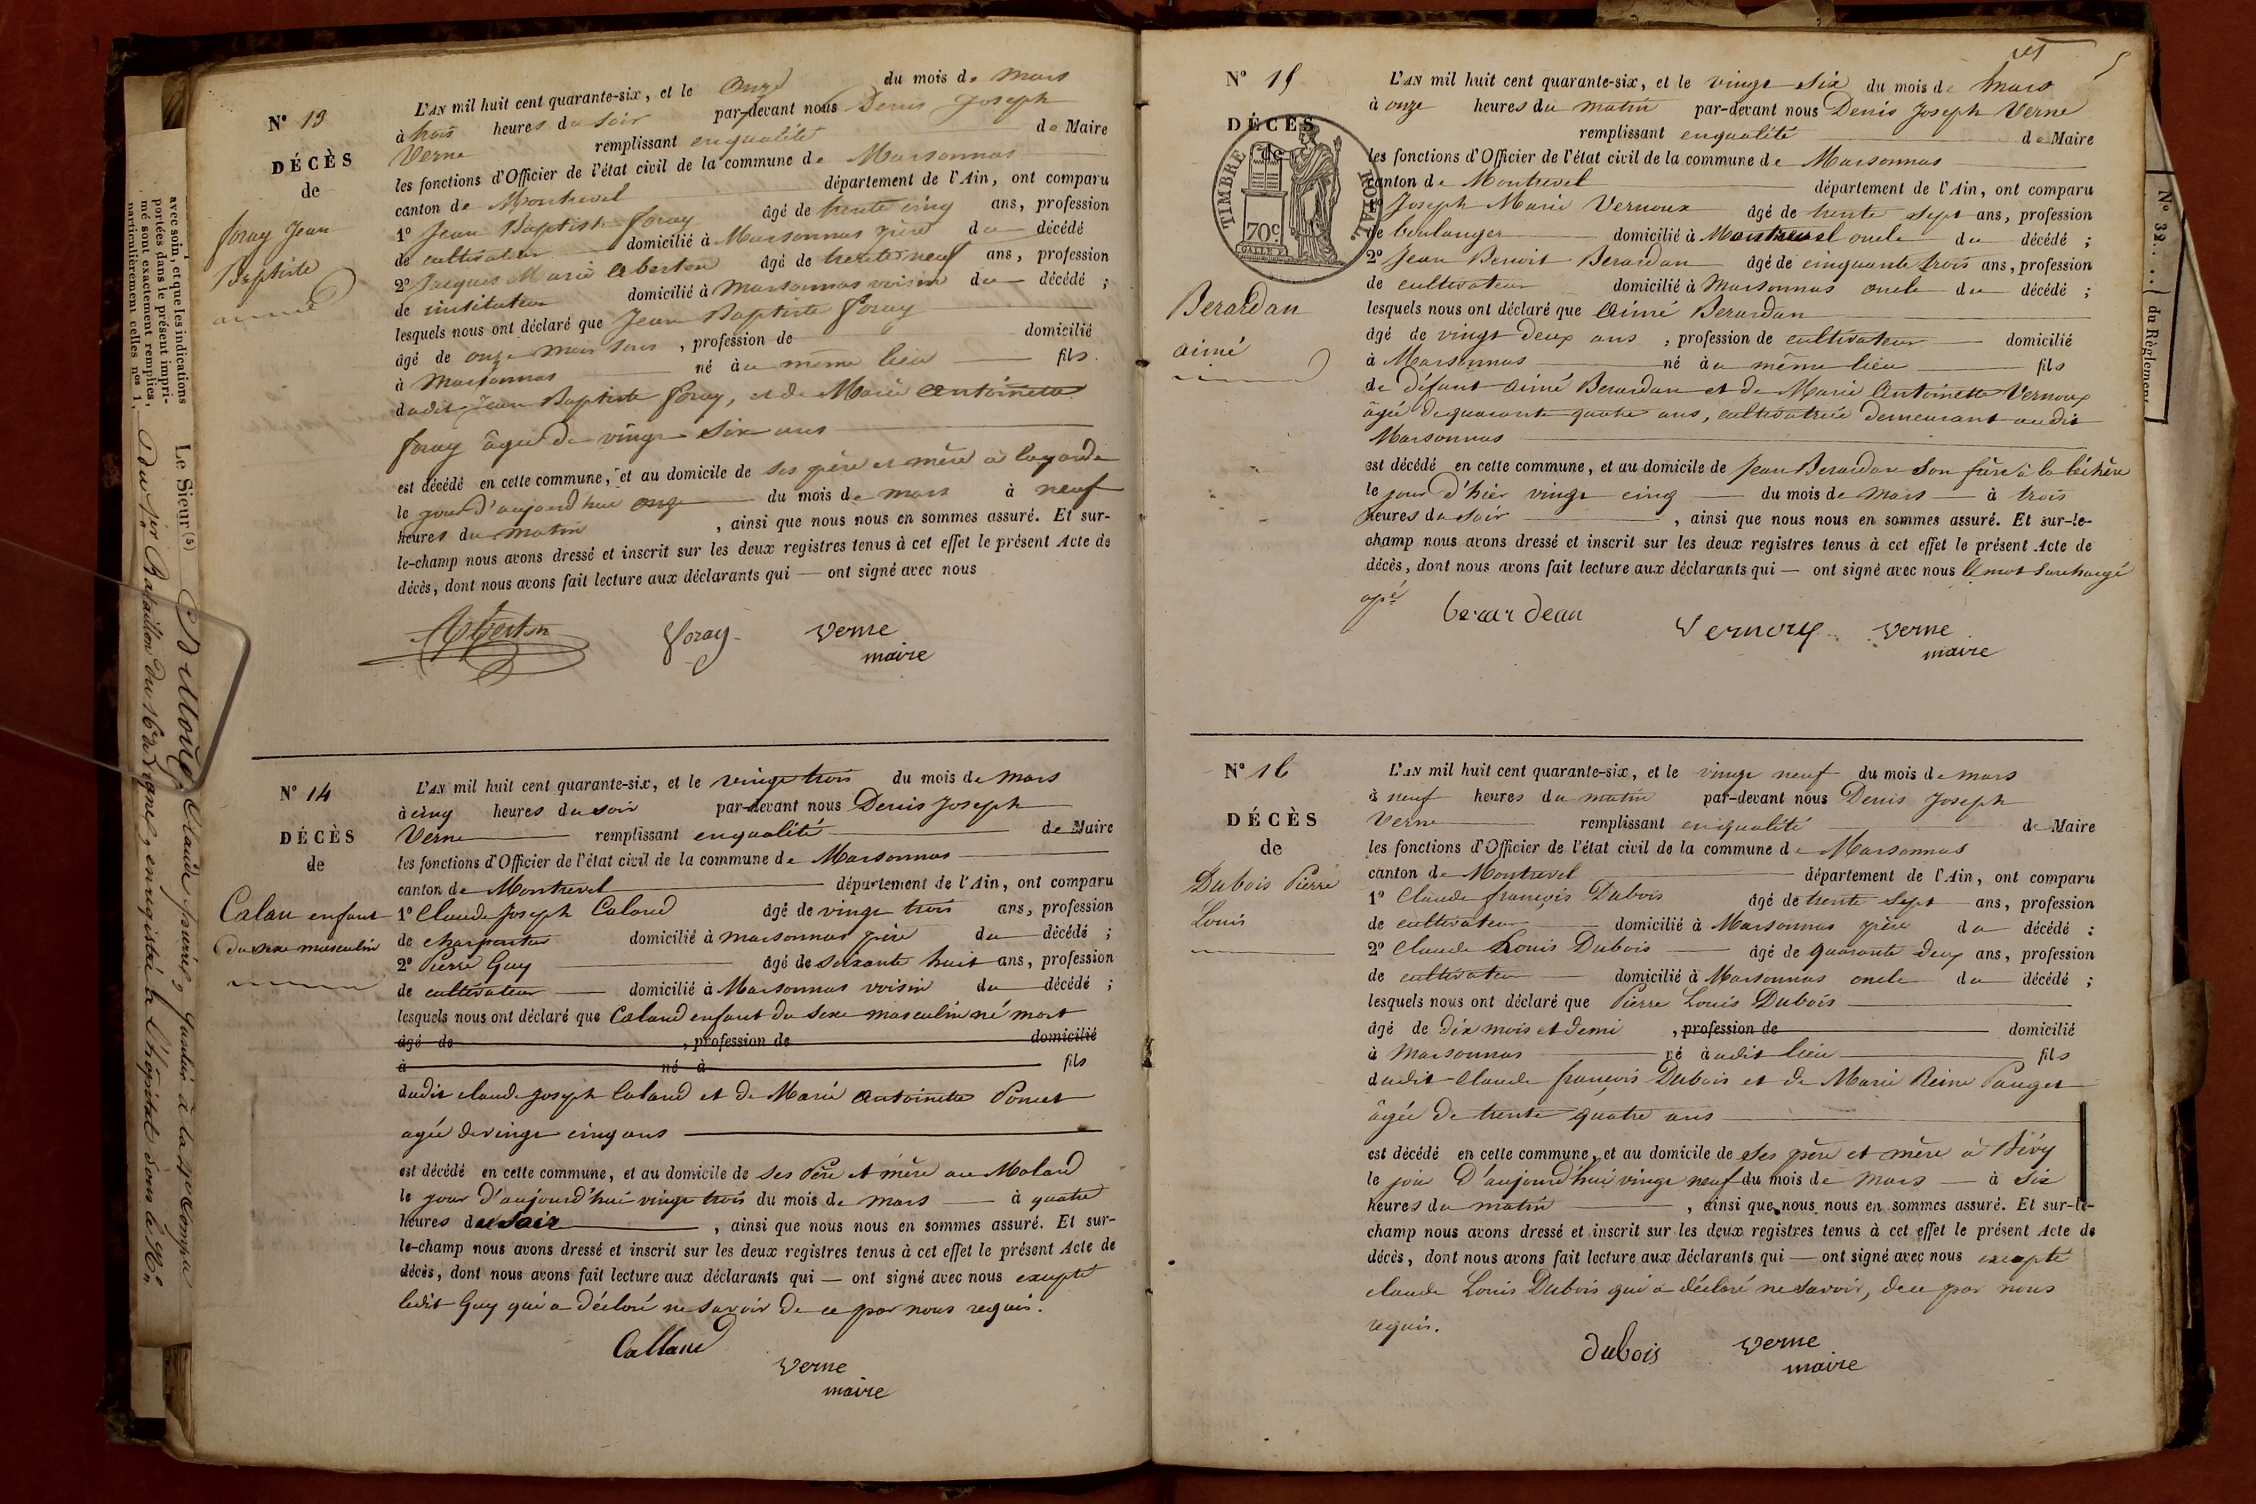 N° 13
DÉCÈS
de
foray Jean
Baptiste
L'AN mil huit cent quarante-six, et le onze du mois de mars
à trois heures du soir par-devant nous Denis Joseph
Verne remplissant enqualité de Maire
les fonctions d'Officier de l'état civil de la commune de Marsonnas
canton de Montrevel département de l'Ain, ont comparu
1° Jean Baptiste foray âgé de trente cinq ans, profession
de cultivateur domicilié à Marsonnas père du décédé
2° Jacques Marie Alberton âgé de trente neuf ans, profession
de instituteur domicilié à Marsonnas voisin du décédé ;
lesquels nous ont déclaré que Jean Baptiste foray
âgé de onze mois , profession de domicilié
à Marsonnas né au même lieu fils
dudit Jean Baptiste foray, et de Marie antoinette
foray âgée de vingt six ans
est décédé en cette commune, et au domicile de ses père et mère à lagarde
le jour d'aujourd'hui onze du mois de mars à neuf
heures du matin , ainsi que nous nous en sommes assuré. Et sur-
le-champ nous avons dressé et inscrit sur les deux registres tenus à cet effet le présent Acte de
décès, dont nous avons fait lecture aux déclarants qui — ont signé avec nous
foray verne
maire
N° 14
DÉCÈS
de
Calau enfant
du sexe masculin
L'AN mil huit cent quarante-six, et le vingt trois du mois de mars
à cinq heures du soir par-devant nous Denis Joseph
Verne remplissant enqualité de Maire
les fonctions d'Officier de l'état civil de la commune de Marsonnas
canton de Montrevel département de l'Ain, ont comparu
1° Claude Joseph Caland âgé de vingt trois ans, profession
de charpentier domicilié à marsonnas père du décédé ;
2° Pierre Guy âgé de soixante huit ans, profession
de cultivateur domicilié à Marsonnas voisin du décédé ;
lesquels nous ont déclaré que Caland enfant du sexe masculin né mort
âgé de , profession de domicilié
à né à fils
dudit claude joseph Caland et de Marie antoinette Poncet
agée de vingt cinq ans
est décédé en cette commune, et au domicile de ses Père et mère au Maland
le jour d'aujourd'hui vingt trois du mois de mars à quatre
heures du soir , ainsi que nous nous en sommes assuré. Et sur-
le-champ nous avons dressé et inscrit sur les deux registres tenus à cet effet le présent Acte de
décès, dont nous avons fait lecture aux déclarants qui — ont signé avec nous excepté
ledit Guy qui a déclaré ne savoir de ce par nous requis.
Calland
verne
maire
N° 15
DÉCÈS
de
TIMBRE ROYAL
70c
Berardan
aimé
L'AN mil huit cent quarante-six, et le vingt six du mois de mars
à onze heures du matin par-devant nous Denis Joseph Verne
remplissant enqualité de Maire
les fonctions d'Officier de l'état civil de la commune de Marsonnas
canton de Montrevel département de l'Ain, ont comparu
1° Joseph Marie Vernoux âgé de trente sept ans, profession
de boulanger domicilié à Montrevel oncle du décédé ;
2° Jean Benoit Berardan âgé de cinquante trois ans, profession
de cultivateur domicilié à Marsonnas oncle du décédé ;
lesquels nous ont déclaré que aimé Berardan
âgé de vingt deux ans , profession de cultivateur domicilié
à Marsonnas né au même lieu fils
de défunt aimé Berardan et de Marie Antoinette Vernoux
âgée de quarante quatre ans, cultivatrice demeurant audit
Marsonnas
est décédé en cette commune, et au domicile de Jean Berardan son frère à la léchère
le jour d'hier vingt cinq du mois de mars à trois
heures du soir , ainsi que nous nous en sommes assuré. Et sur-le-
champ nous avons dressé et inscrit sur les deux registres tenus à cet effet le présent Acte de
décès, dont nous avons fait lecture aux déclarants qui — ont signé avec nous le mot surchargé
apé
berardean Vernoux verne
maire
N° 16
DÉCÈS
de
Dubois Pierre
Louis
L'AN mil huit cent quarante-six, et le vingt neuf du mois de mars
à neuf heures du matin par-devant nous Denis Joseph
Verne remplissant enqualité de Maire
les fonctions d'Officier de l'état civil de la commune de Marsonnas
canton de Montrevel département de l'Ain, ont comparu
1° Claude françois Dubois âgé de trente sept ans, profession
de cultivateur domicilié à Marsonnas père du décédé ;
2° Claude Louis Dubois âgé de quarante deux ans, profession
de cultivateur domicilié à Marsonnas oncle du décédé ;
lesquels nous ont déclaré que Pierre Louis Dubois
âgé de dix mois et demi , profession de domicilié
à Marsonnas né audit lieu fils
dudit Claude françois Dubois et de Marie Reine Pauget
âgée de trente quatre ans
est décédé en cette commune, et au domicile de ses père et mère à Bévy
le jour d'aujourd'hui vingt neuf du mois de mars à six
heures du matin , ainsi que nous nous en sommes assuré. Et sur-le-
champ nous avons dressé et inscrit sur les deux registres tenus à cet effet le présent Acte de
décès, dont nous avons fait lecture aux déclarants qui — ont signé avec nous excepté
claude Louis Dubois qui a déclaré ne savoir, de ce par nous
requis.
dubois verne
maire
avec soin, et que les indications
portées dans le présent impri-
mé sont exactement remplies,
particulièrement celles nos 1,
Le Sieur (5)
N° 32
du Règlement